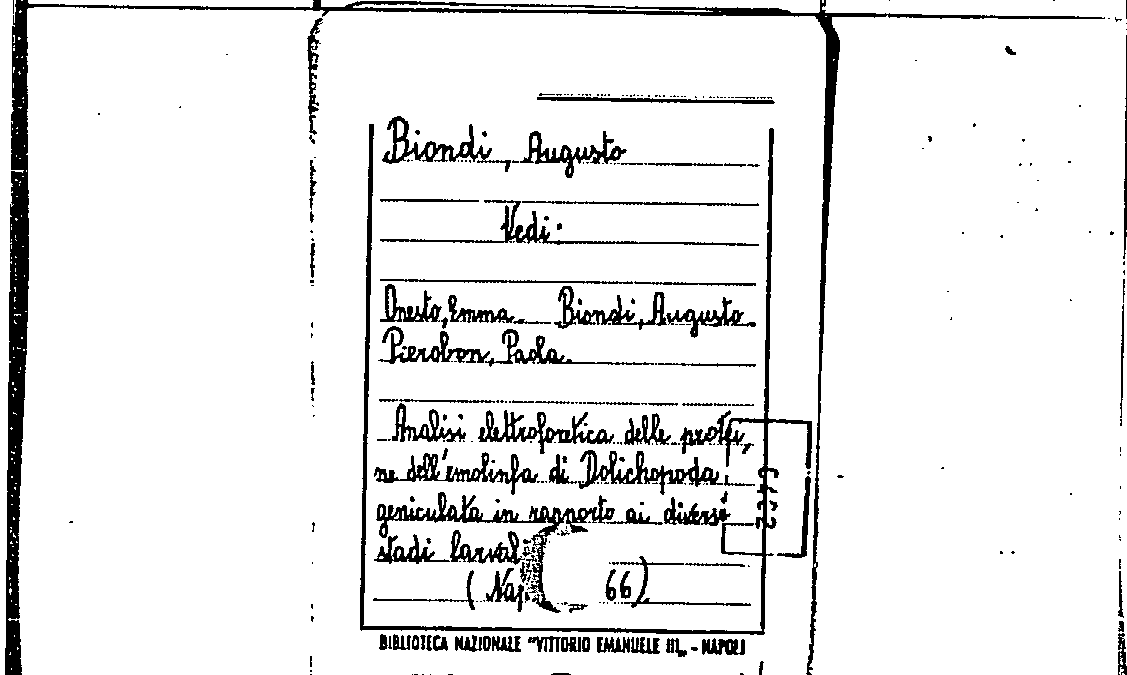 Biondi, Augusto
Vedi:
Onesto, Emma. Biondi, Augusto.
Pierobon, Paola.
Analisi elettroforetica delle protei,
ne dell'emolinfa di Dolichopoda
geniculata in rapporto ai diversi
stadi larvali
(Nap. 66)
BIBLIOTECA NAZIONALE "VITTORIO EMANUELE III" - NAPOLI